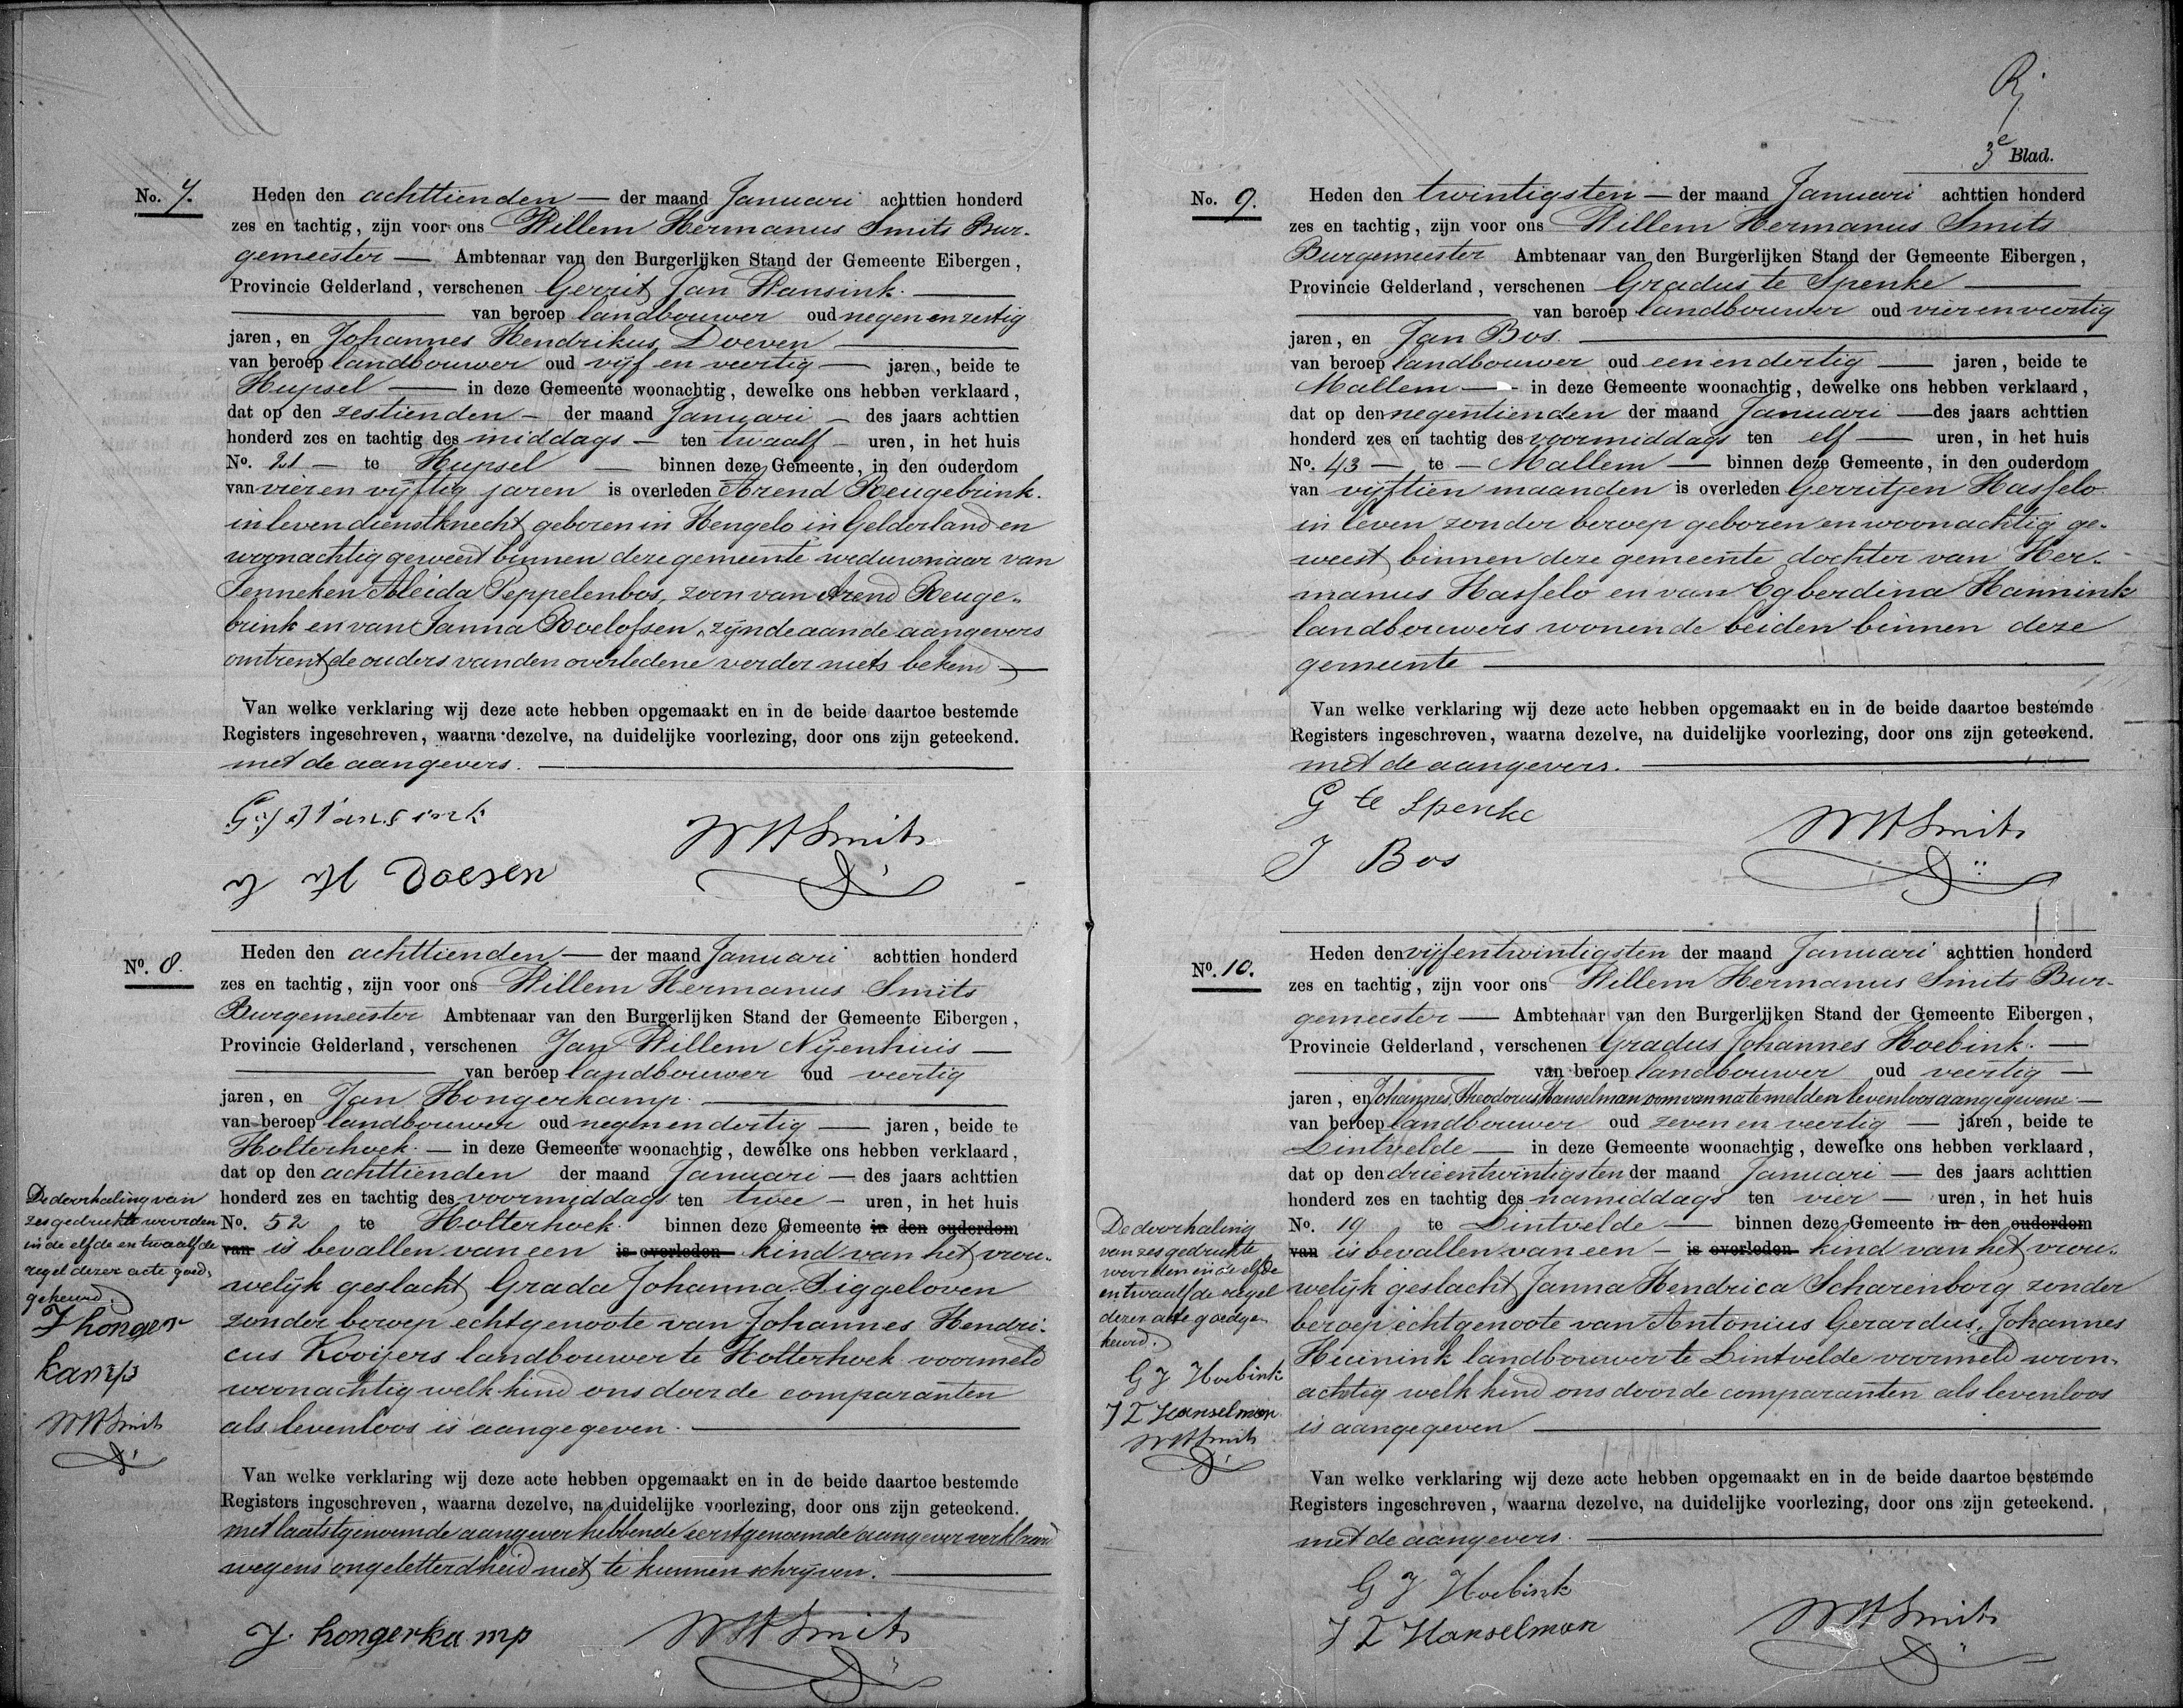 No. 7.
Heden den achttienden — der maand Januari achttien honderd
zes en tachtig, zijn voor ons Willem Hermanus Smits Bur-
gemeester — Ambtenaar van den Burgerlijken Stand der Gemeente Eibergen,
Provincie Gelderland, verschenen Gerrit Jan Wansink.
van beroep landbouwer oud negen en zestig
jaren, en Johannes Hendrikus Doeven
van beroep landbouwer oud vijf en veertig — jaren, beide te
Hupsel — in deze Gemeente woonachtig, dewelke ons hebben verklaard,
dat op den zestienden — der maand Januari — des jaars achttien
honderd zes en tachtig des middags — ten twaalf — uren, in het huis
No. 21 — te Hupsel — binnen deze Gemeente, in den ouderdom
van vier en vijftig jaren is overleden Arend Reugebrink.
in leven dienstknecht, geboren in Hengelo in Gelderland en
woonachtig geweest binnen deze gemeente weduwnaar van
Jenneken Aleida Peppelenbos, zoon van Arend Reuge-
brink en van Janna Roelofsen, zijnde aan de aangevers
omtrent de ouders van den overledene verder niets bekend —
Van welke verklaring wij deze acte hebben opgemaakt en in de beide daartoe bestemde
Registers ingeschreven, waarna dezelve, na duidelijke voorlezing, door ons zijn geteekend.
met de aangevers.
G. J. Wansink
WHSmits
J H Doesen
No. 8.
Heden den achttienden — der maand Januari achttien honderd
zes en tachtig, zijn voor ons Willem Hermanus Smits
Burgemeester Ambtenaar van den Burgerlijken Stand der Gemeente Eibergen,
Provincie Gelderland, verschenen Jan Willem Nijenhuis —
van beroep landbouwer oud veertig
jaren, en Jan Hongerkamp.
van beroep landbouwer oud negen en dertig — jaren, beide te
Holterhoek. — in deze Gemeente woonachtig, dewelke ons hebben verklaard,
dat op den achttienden der maand Januari — des jaars achttien
honderd zes en tachtig des voormiddags ten twee — uren, in het huis
No. 52 te Holterhoek. binnen deze Gemeente in den ouderdom
van is bevallen van een is overleden kind van het vrou-
welijk geslacht Grada Johanna Siggeloven
zonder beroep echtgenoote van Johannes Hendri-
cus Kooijers landbouwer te Holterhoek voormeld
woonachtig welk kind ons door de comparanten
als levenloos is aangegeven.
De doorhaling van
zes gedrukte woorden
in de elfde en twaalfde
regel dezer acte goed-
gekeurd.
J honger
kamp
WHSmits
Van welke verklaring wij deze acte hebben opgemaakt en in de beide daartoe bestemde
Registers ingeschreven, waarna dezelve, na duidelijke voorlezing, door ons zijn geteekend.
met laatstgenoemde aangever hebbende eerstgenoemde aangever verklaard
wegens ongeletterdheid niet te kunnen schrijven.
J. hongerkamp
WHSmits
3e Blad.
No. 9.
Heden den twintigsten — der maand Januari achttien honderd
zes en tachtig, zijn voor ons Willem Hermanus Smits
Burgemeester Ambtenaar van den Burgerlijken Stand der Gemeente Eibergen,
Provincie Gelderland, verschenen Gradus te Spenke
van beroep landbouwer oud vier en veertig
jaren, en Jan Bos.
van beroep landbouwer oud een en dertig — jaren, beide te
Mallem — in deze Gemeente woonachtig, dewelke ons hebben verklaard,
dat op den negentienden der maand Januari — des jaars achttien
honderd zes en tachtig des voormiddags ten elf — uren, in het huis
No. 43 — te — Mallem — binnen deze Gemeente, in den ouderdom
van vijftien maanden is overleden Gerritjen Hasselo
in leven zonder beroep geboren en woonachtig ge-
weest binnen deze gemeente dochter van Her-
manus Hasselo en van Egberdina Hannink
landbouwers wonende beiden binnen deze
gemeente
Van welke verklaring wij deze acte hebben opgemaakt en in de beide daartoe bestemde
Registers ingeschreven, waarna dezelve, na duidelijke voorlezing, door ons zijn geteekend.
met de aangevers.
G te Spenke
WHSmits
J Bos
No. 10.
Heden den vijfentwintigsten der maand Januari achttien honderd
zes en tachtig, zijn voor ons Willem Hermanus Smits Bur-
gemeester — Ambtenaar van den Burgerlijken Stand der Gemeente Eibergen,
Provincie Gelderland, verschenen Gradus Johannes Hoebink. —
van beroep landbouwer oud veertig —
jaren, en Johannes Theodorus Hanselman oom van na te melden levenloos aangegevene —
van beroep landbouwer oud zeven en veertig — jaren, beide te
Lintvelde — in deze Gemeente woonachtig, dewelke ons hebben verklaard,
dat op den drieentwintigsten der maand Januari — des jaars achttien
honderd zes en tachtig des namiddags ten vier — uren, in het huis
No. 19 te Lintvelde — binnen deze Gemeente in den ouderdom
van is bevallen van een — is overleden kind van het vrou-
welijk geslacht Janna Hendrica Scharenborg zonder
beroep echtgenoote van Antonius Gerardus Johannes
Huinink landbouwer te Lintvelde voormeld woon-
achtig welk kind ons door de comparanten als levenloos
is aangegeven
De doorhaling
van zes gedrukte
woorden in de elfde
en twaalfde regel
dezer acte goedge-
keurd.
G J Hoebink
J T Hanselman
WHSmits
Van welke verklaring wij deze acte hebben opgemaakt en in de beide daartoe bestemde
Registers ingeschreven, waarna dezelve, na duidelijke voorlezing, door ons zijn geteekend.
met de aangevers.
G J Hoebink
J T Hanselman
WHSmits